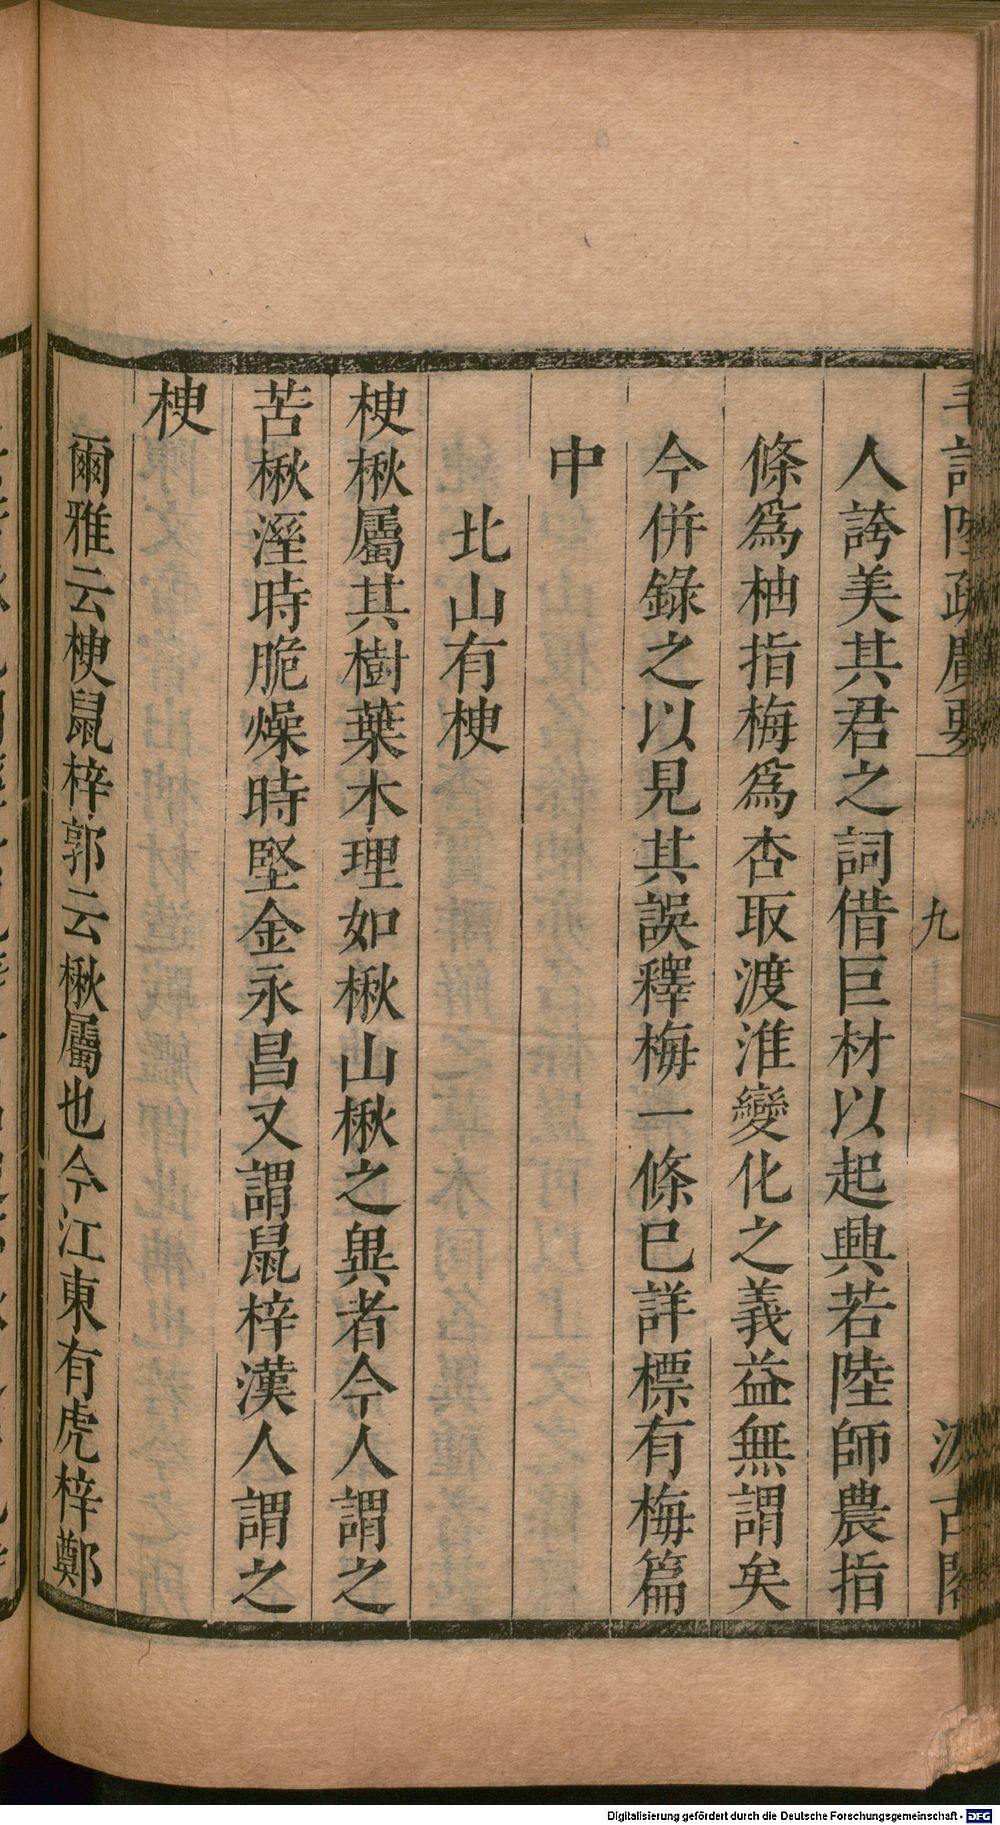 毛詩陸疏廣要 九 汲古閣
人誇美其君之詞借巨材以起興若陸師農指
條爲柚指梅爲杏取渡淮變化之義益無謂矣
今併錄之以見其誤釋梅一條已詳標有梅篇
中
北山有楰
楰楸屬其樹葉木理如楸山楸之異者今人謂之
苦楸溼時脆燥時堅金永昌又謂鼠梓漢人謂之
楰
爾雅云楰鼠梓郭云楸屬也今江東有虎梓鄭
Digitalisierung gefördert durch die Deutsche Forschungsgemeinschaft - DFG